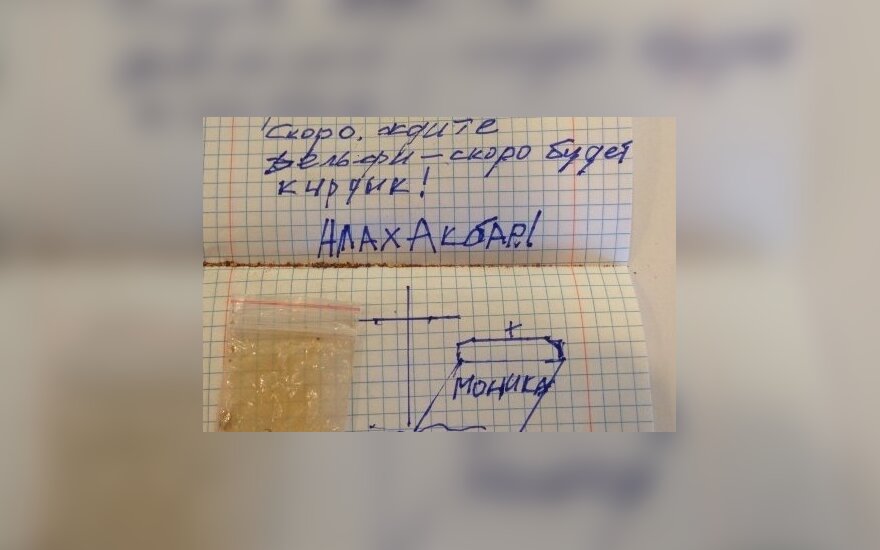 Скоро, ждите
Дельфи – скоро будет
кирдык!
АЛАХ АКБАР!
МОНИКА